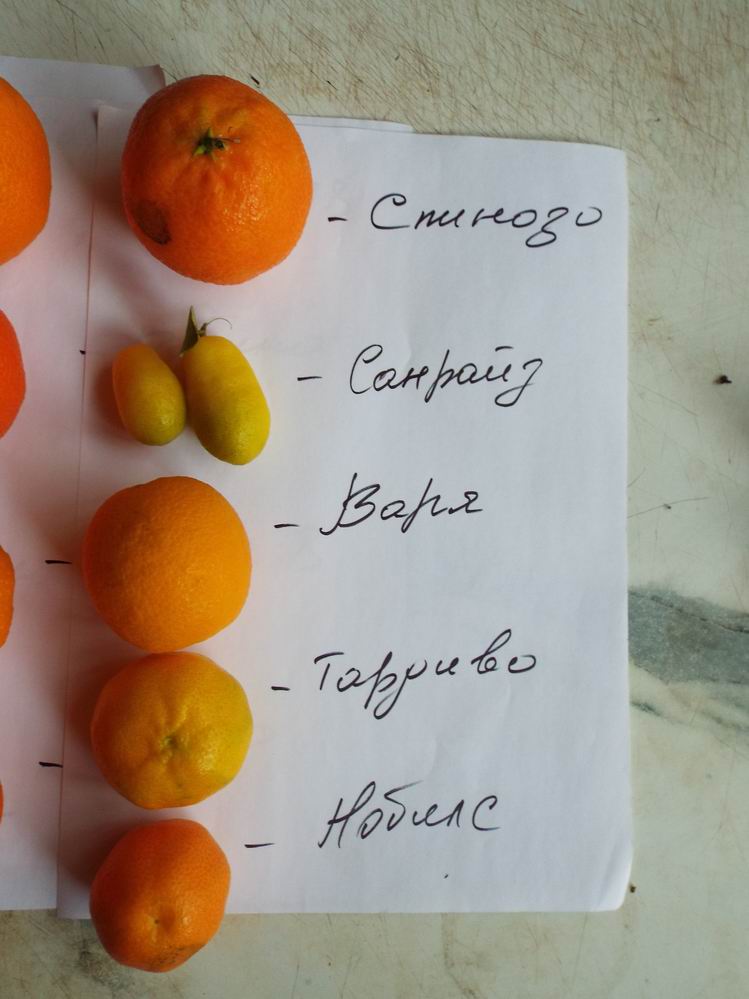 - Спинозо
- Санрайз
- Варя
- Тарриво
- Нобилс